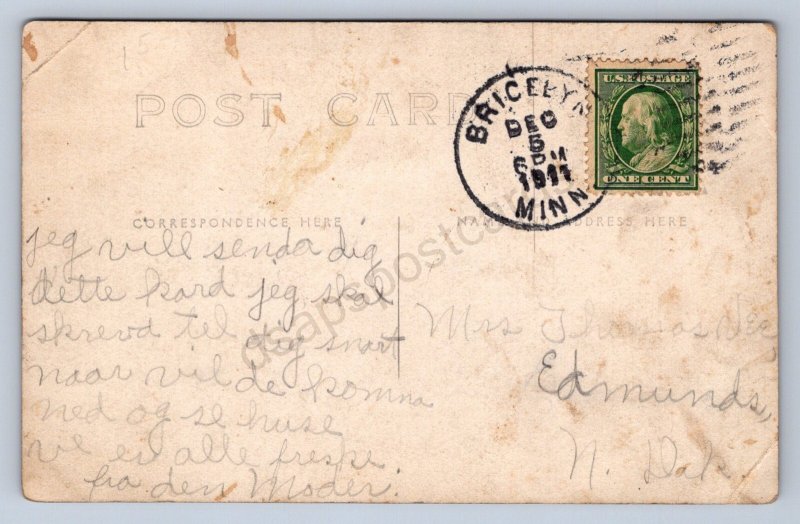 15
POST CARD
BRICELYN
DEC
5
6 PM
1911
MINN
U.S. POSTAGE
ONE CENT
CORRESPONDENCE HERE
NAME AND ADDRESS HERE
jeg vill senda dig
dette kord jeg skal
skrevd tel dig snart
naar vil de komna
ned og se huse
ve er alle freske
fra den Moder.
Mrs Thomas Vee
Edmunds,
N. Dak.
dsapspostcards